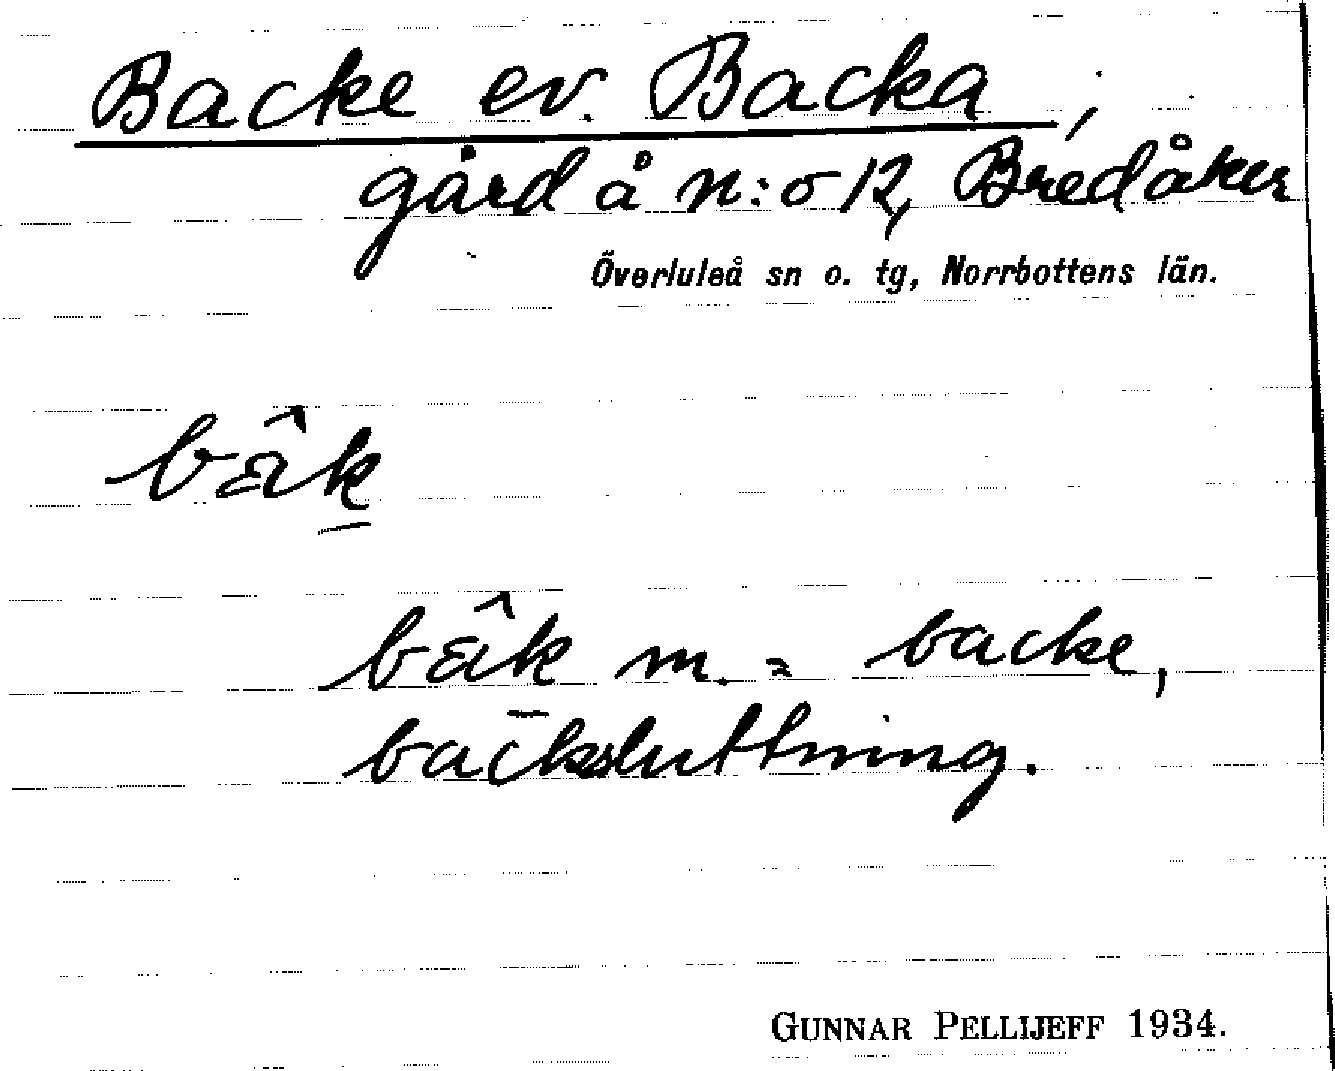 Backe ev. Backa,
gård å n:o 12, Bredåker
Överluleå sn o. tg, Norrbottens län.
bä̂k̲
bä̂k m. = backe,
backsluttning.
GUNNAR PELLIJEFF 1934.